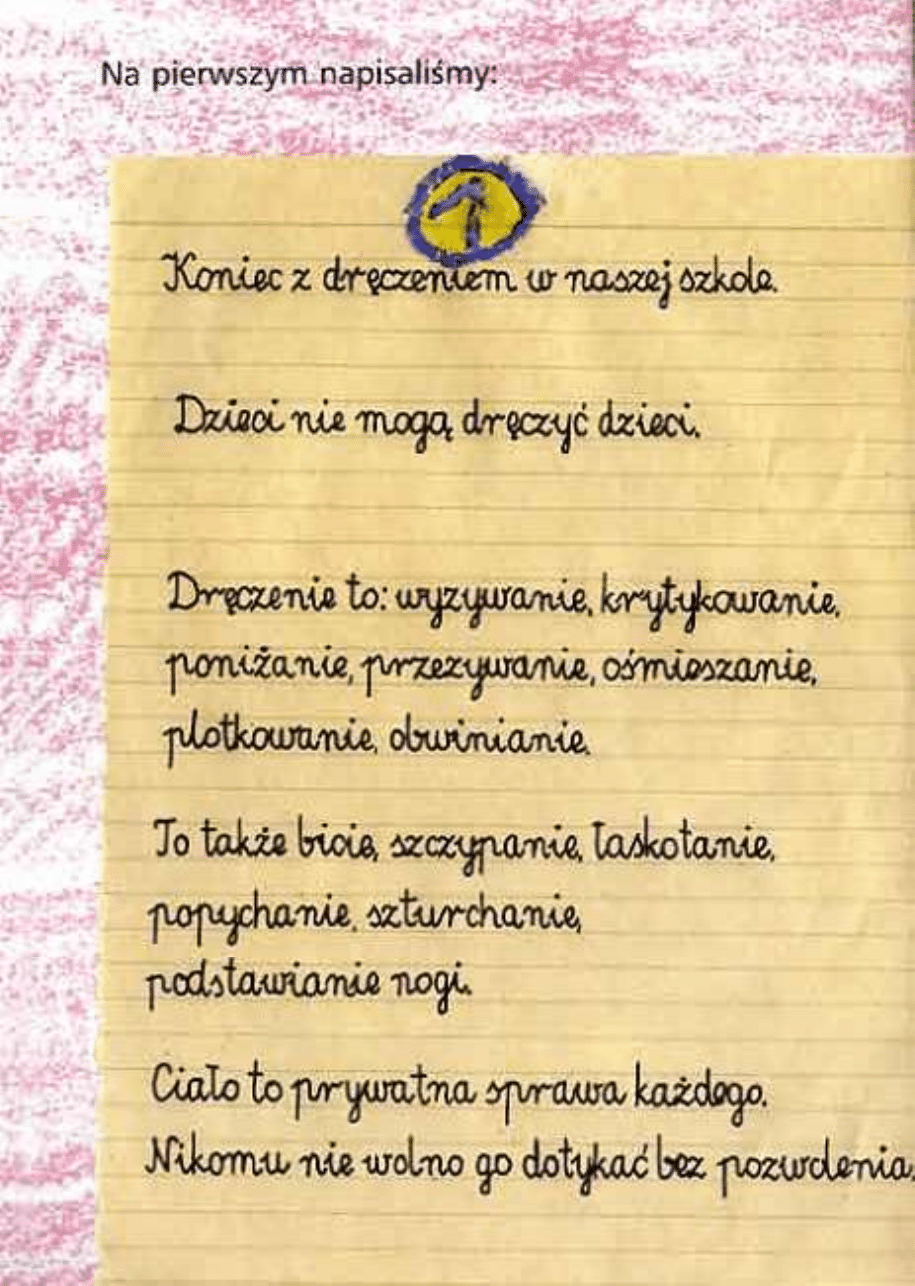 Na pierwszym napisaliśmy:
1
Koniec z dręczeniem w naszej szkole.
Dzieci nie mogą dręczyć dzieci.
Dręczenie to: wyzywanie, krytykowanie,
poniżanie, przezywanie, ośmieszanie,
plotkowanie, obwinianie.
To także bicie, szczypanie, łaskotanie,
popychanie, szturchanie,
podstawianie nogi.
Ciało to prywatna sprawa każdego.
Nikomu nie wolno go dotykać bez pozwolenia.